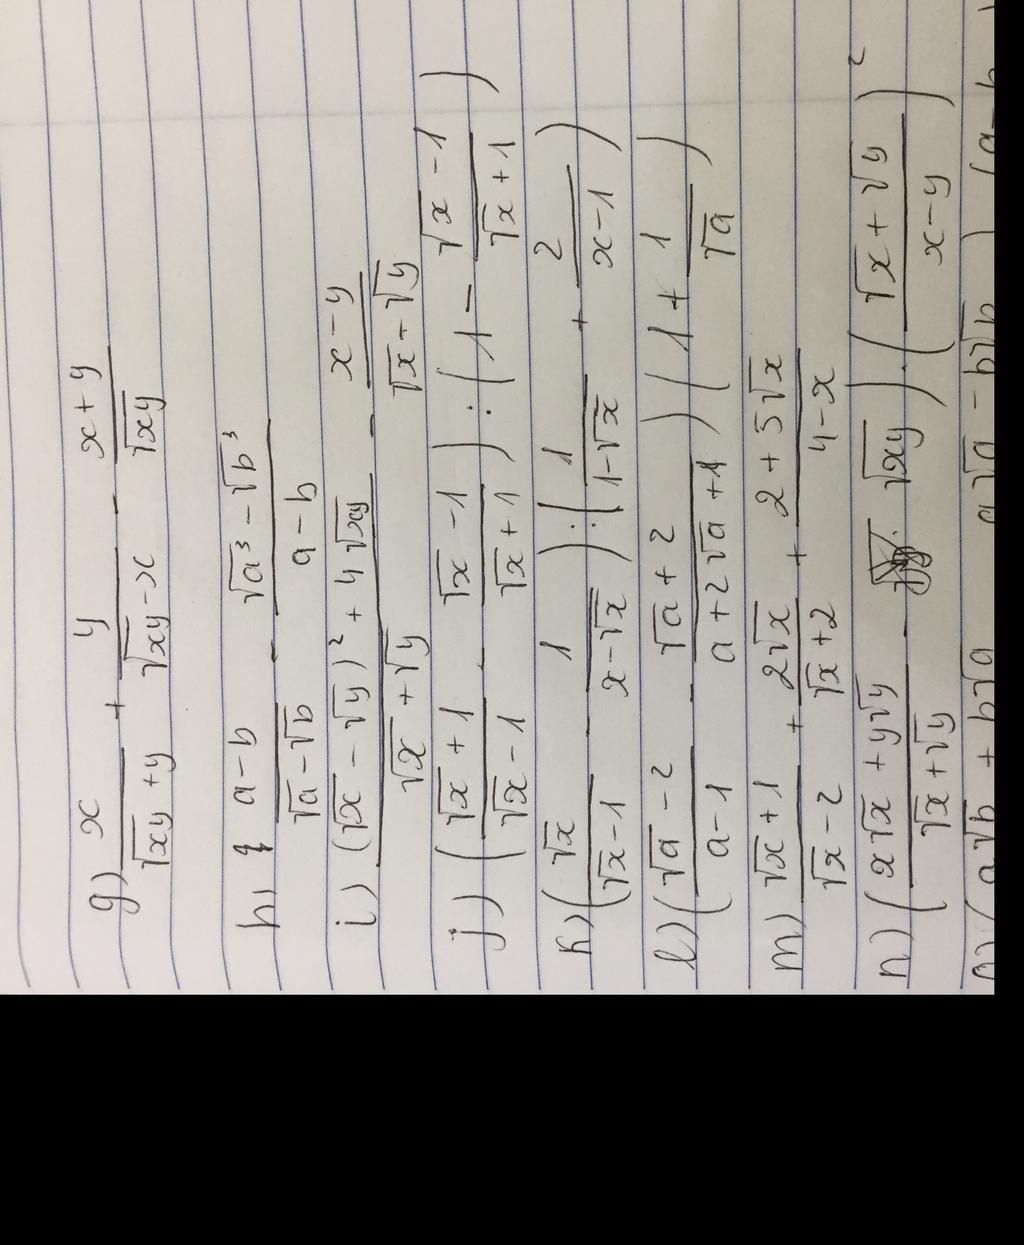 g) x/(√xy + y) + y/(√xy − x) − (x + y)/√xy
h) (a − b)/(√a − √b) − (√a³ − √b³)/(a − b)
i) ((√x − √y)² + 4√xy)/(√x + √y) − (x − y)/(√x − √y)
j) ((√x + 1)/(√x − 1) − (√x − 1)/(√x + 1)) : (1 − (√x − 1)/(√x + 1))
k) (√x/(√x − 1) − 1/(x − √x)) : (1/(1 − √x) + 2/(x − 1))
l) ((√a − 2)/(a − 1) − (√a + 2)/(a + 2√a + 1)) (1 + 1/√a)
m) (√x + 1)/(√x − 2) + 2√x/(√x + 2) + (2 + 5√x)/(4 − x)
n) ((x√x + y√y)/(√x + √y) − √xy) · ((√x + √y)/(x − y))²
a√b + b√a a√a − b√b (a − b